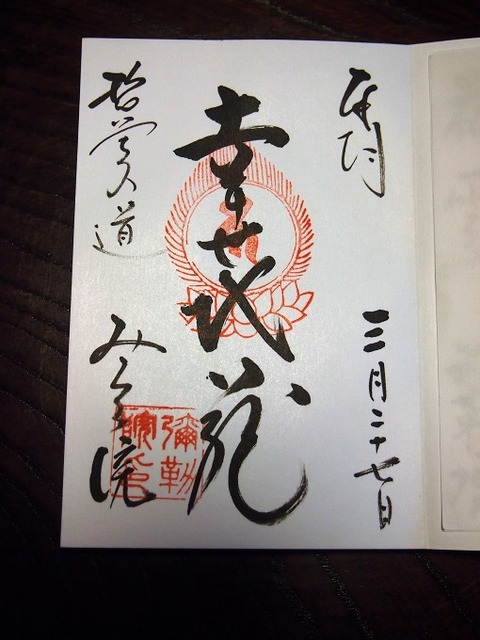 奉拝
三月二十七日
幸せ地蔵
哲学の道
みろく院
彌勒
院印